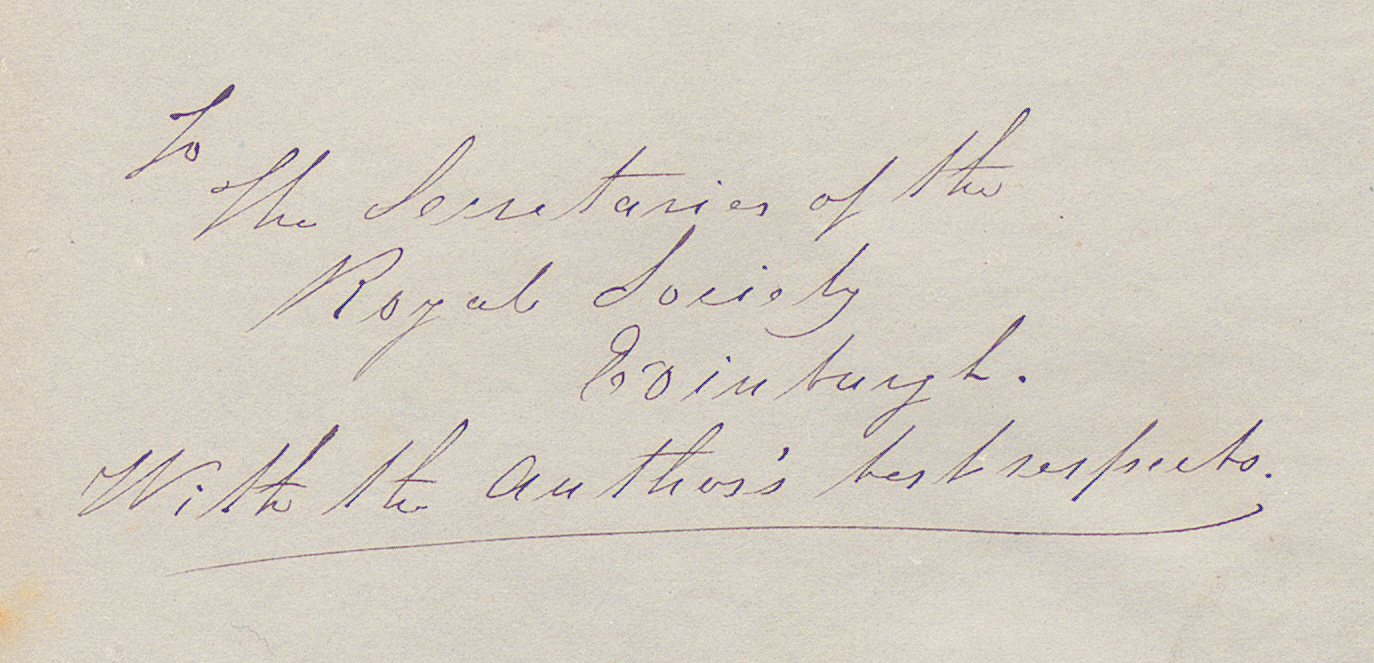 To
The Secretaries of the
Royal Society
Edinburgh.
With the Author's best respects.